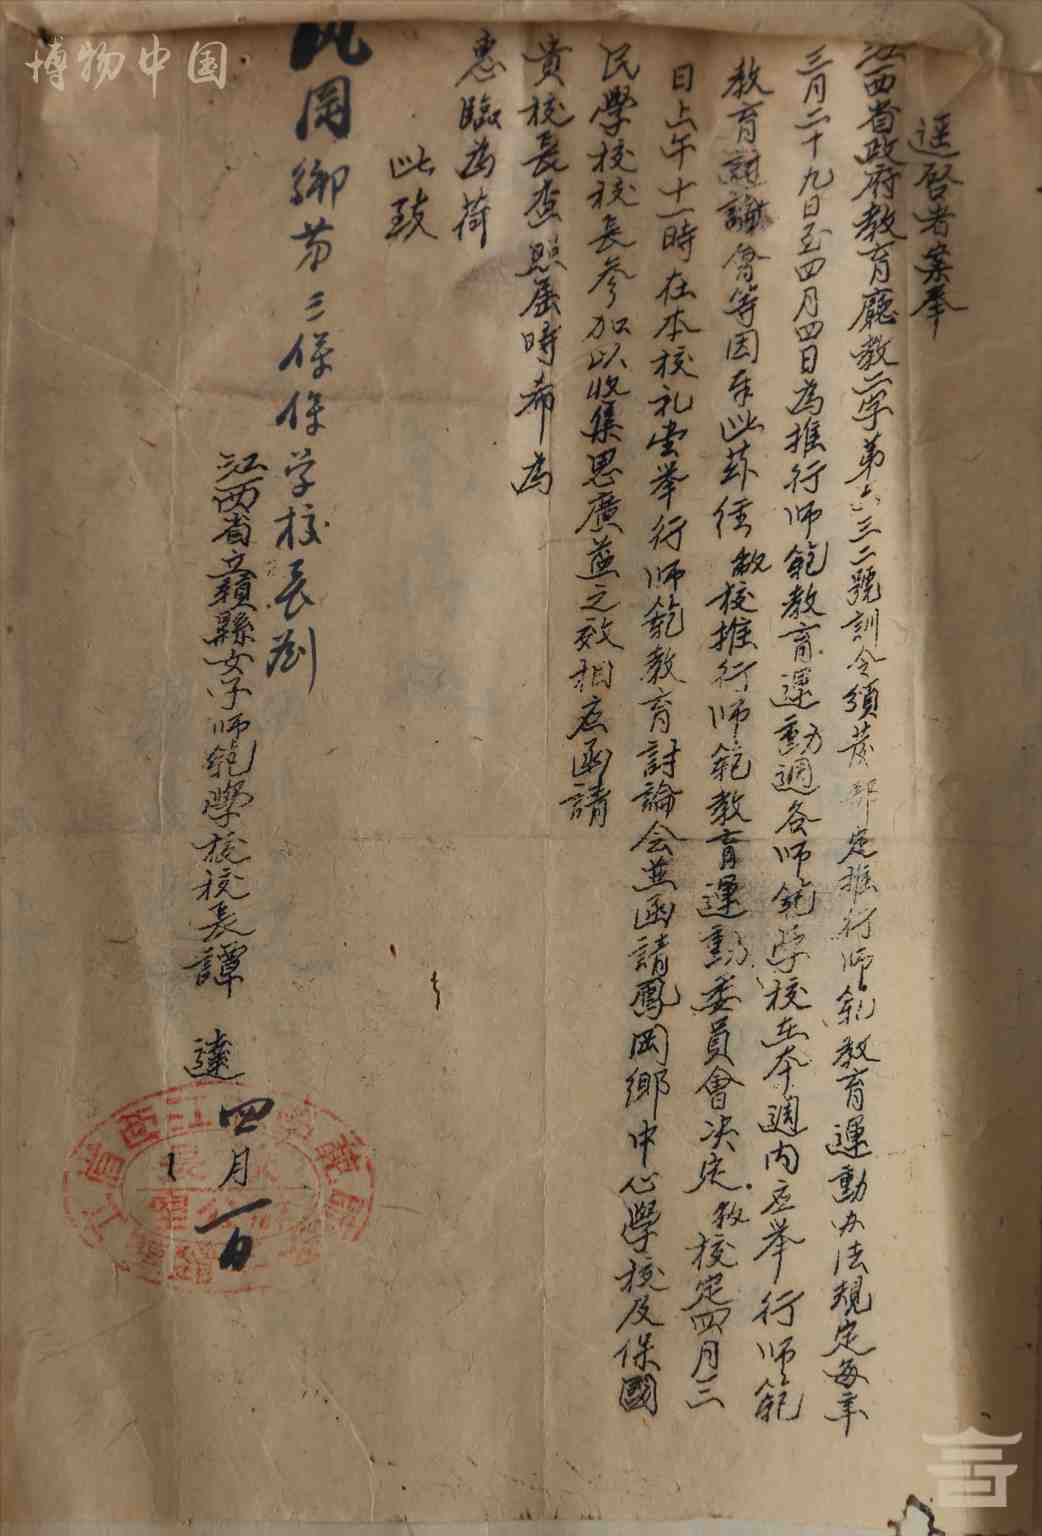 逕啓者案奉
江西省政府教育廳教二字第六三二號訓令頒發部定推行师範教育運動办法規定每年
三月二十九日至四月四日為推行师範教育運動週各师範学校在本週内应举行师範
教育討論會等因奉此茲經敝校推行师範教育運動委員會决定敝校定四月三
日上午十一時在本校礼堂举行师範教育討論会並函請鳳岡鄉中心學校及保國
民學校校長參加以收集思廣益之效相应函請
貴校長查照届時希為
惠臨為荷
此致
鳳岡鄉第三保保学校長劉
江西省立贛縣女子师範學校校長譚達
四月一日
博物中国